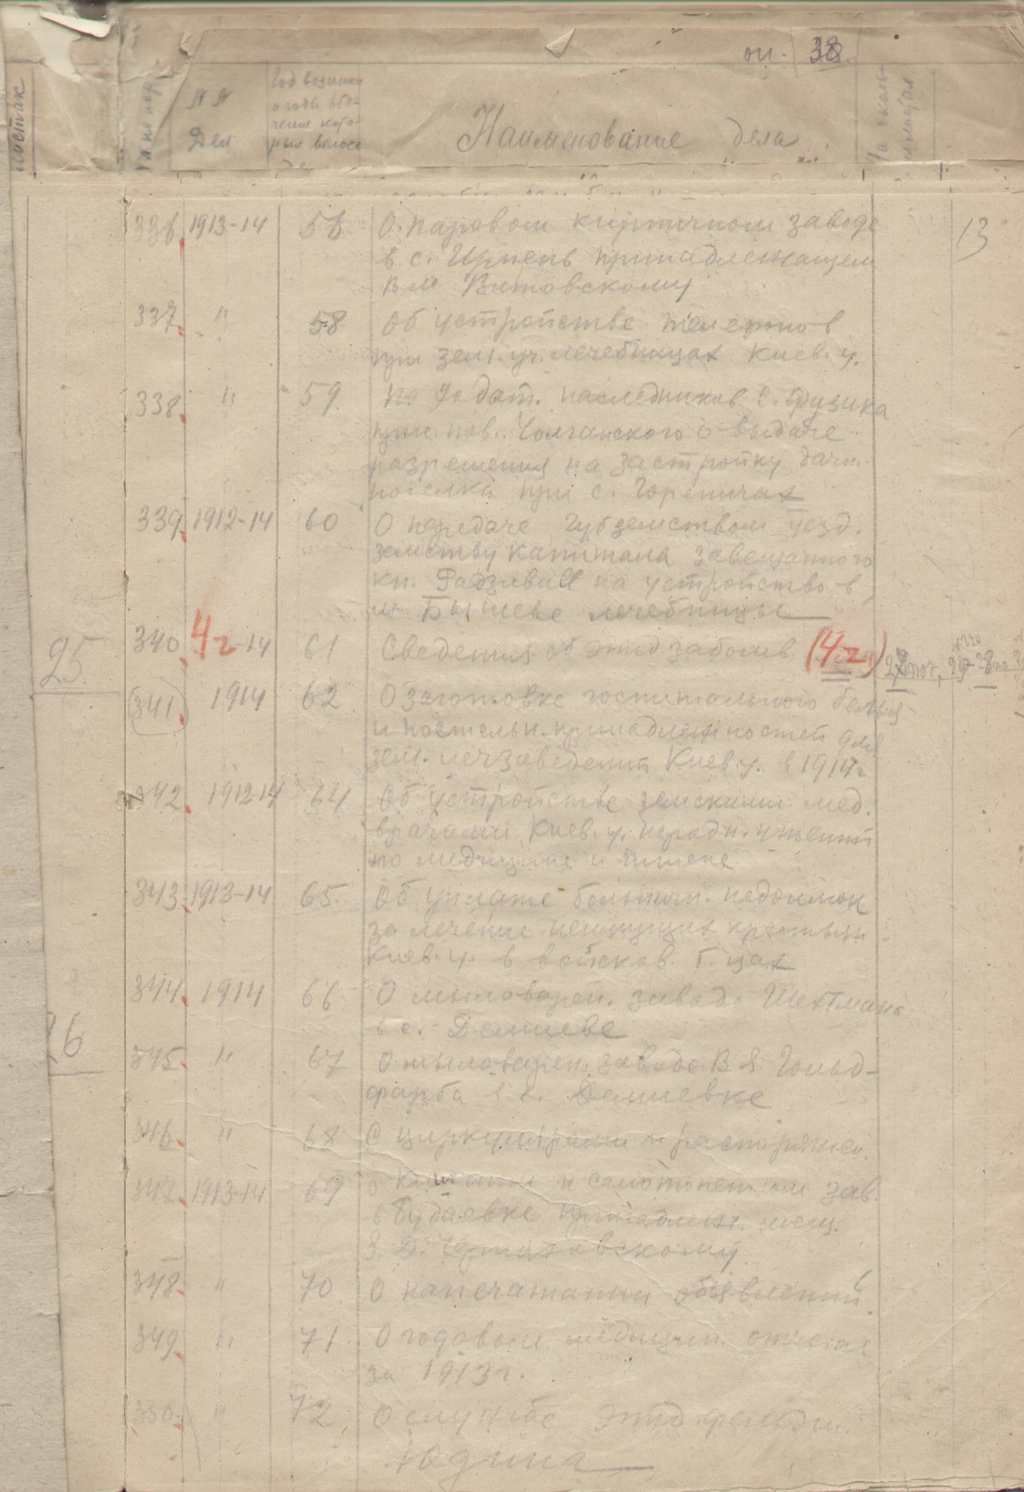 оп. 38
№№ Дел
Наименование дела
336 1913-14 56 О паровом кирпичном заводе
в с. Ирпень принадлежащем
В М Витовскому
13
337 " 58 Об устройстве телефонов
при зем. уч. лечебницах Киев. у.
338 " 59 По ходат. наследников С.
о выдаче
разрешения на застройку дачн.
поселка при с. Гореничах
339 1912-14 60 О передаче Губземством уезд.
земству капитала завещанного
кн. Радзивилл на устройство в
м Бышеве лечебницы
25 340 4г-14 61 Сведения об эпид забол (4г)
341 1914 62 О заготовке госпитального белья
и постельн. принадлежностей для
зем. лечзаведения Киев у. в 1914 г
342 1912-14 64 Об устройстве земскими мед.
врачами Киев. у. народн. чтений
по медицине и гигиене
343 1913-14 65. Об уплате больничн. недоимок
за лечение неимущих крестьян
Киев. у. в войсков. б-цах
344 1914 66 О мыловарен. заводе
в с. Демиевке
26
345 " 67 О мыловарен. заводе В Я Гольд-
фарба в с. Демиевке
346 " 68 С циркулярами и распоряжен.
347 1913-14 69 О зав
в Будаевке принадлеж. мещ.
З. Д.
348 " 70 О напечатании объявлений.
349 " 71 О годовом медицин. отчете
за 1913 г.
350 " 72 О службе эпид фельдш.